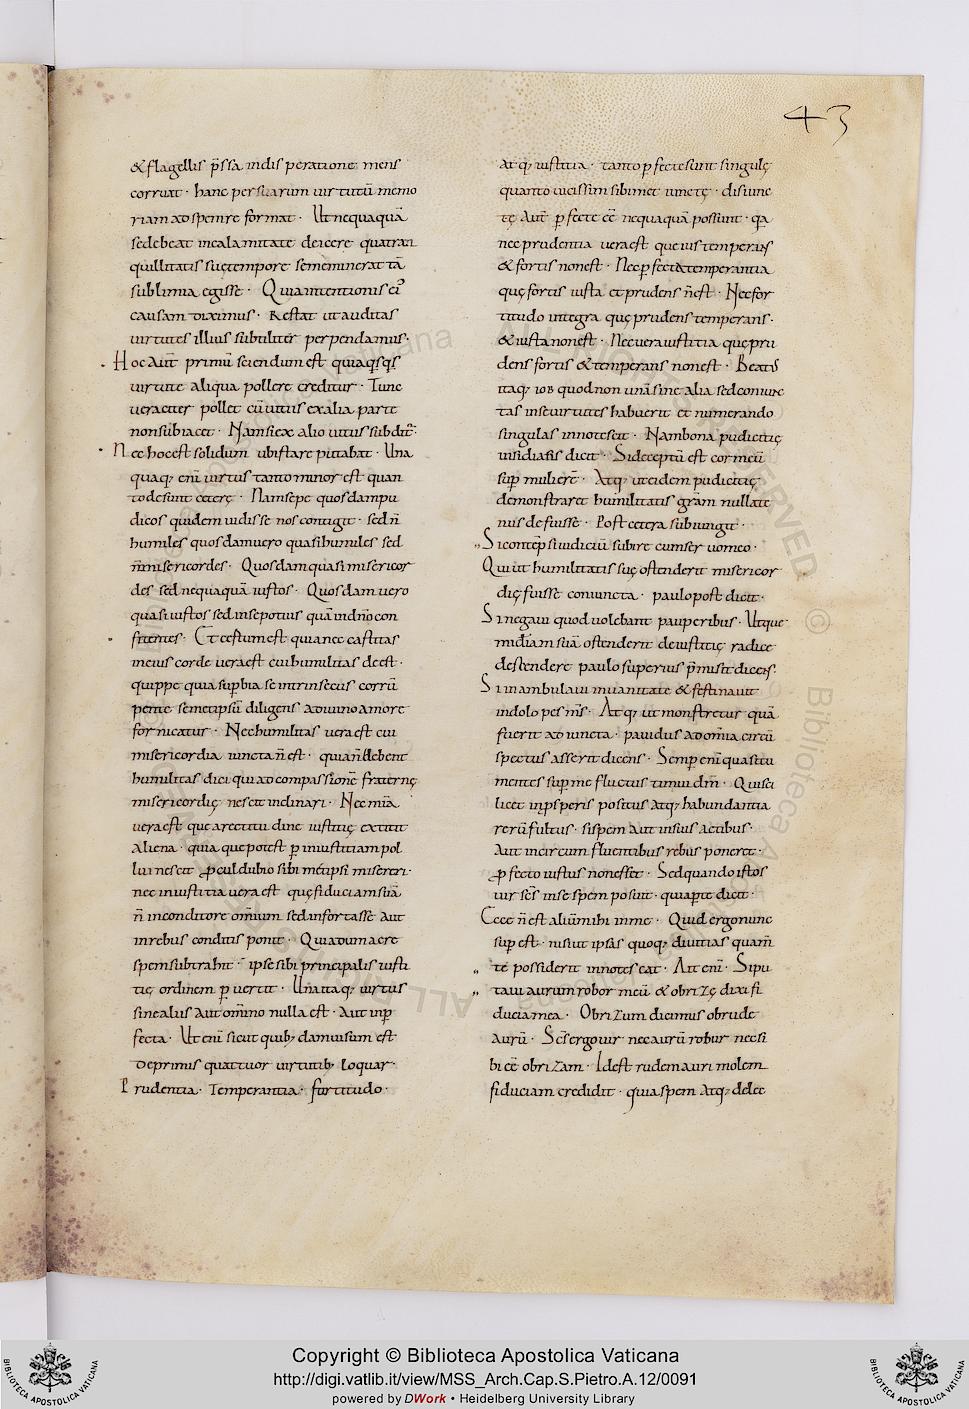 43
& flagellis p̄ssa indisperatione mens
corruat · hanc persuarum uirtutū memo
riam adspemre format · Ut nequaquā
sedebeat incalamitate deicere quatran
quillitatis suę tempore sememinerat tā
sublimia egisse · Quia intentionis ei᾽
causam diximus · Restat ut auditas
uirtutes illius subtiliter perpendamus ·
Hoc aūt primū sciendum est quia qs̄qs̄
uirtute aliqua pollere creditur · Tunc
ueraciter pollet cū uitiis ex alia parte
non subiacet · Nam si ex alio uitiis subdit̄ ·
Nec hoc est solidum ubi stare putabat · Una
quaq; eni uirtus tanto minor est quan
to desunt ceterę · Nam sępe quosdam pu
dicos quidem uidisse nos contigit · sed ñ
humiles quosdam uero quasi humiles sed
ñ misericordes · Quosdam quasi misericor
des sed nequaquā iustos · Quosdam uero
quasi iustos sed inse potius quā indño con
fidentes · Et certum est quia nec castitas
in eius corde uera est cui humilitas deest ·
quippe quia supbia se intrinsecus corrū
pente semetipsū diligens adiuino amore
fornicatur · Nec humilitas uera est cui
misericordia iuncta ñ est · quia ñ debent
humilitas dici qui ad compassionē fraternę
miserię nescit inclinari · Nec mīa
uera est que arectitudine iustitię extitit
aliena · quia que potest p iniustitiam pol
lui nescit pculdubio sibi metipsi misereri ·
nec iniustitia uera est quę fiduciam suā
ñ inconditore omnium sed infortasse aut
in rebus conditis ponit · Quia dum acre
spem subtrahit · ipse sibi principalis iusti
tię ordinem puertit · Una itaq; uirtus
sine aliis aut omīno nulla est · aut inp
fecta · Ut eni sicut quib; dam uisum est
de primis quattuor uirtutib; loquar ·
Prudentia · Temperantia · fortitudo ·
atq; iustitia · tanto pfecte sunt singulę
quanto uicissim sibimet iunctę · disiunc
tę aūt pfecte eē nequaquā possunt · qa
nec prudentia uera est que iusta temperans
& fortis non est · Nec pfecta temperantia
quę fortis iusta et prudens ñ est · Nec for
titudo integra quę prudens temperans ·
& iusta non est · Nec uera iustitia quę pru
dens fortis & temperans non est · Beatus
itaq; iob quod non unā sine alia sed coniunc
tas inse uirtutes habuerit et numerando
singulas innotescit · Nam bona pudicitię
insidiasis dicit · Si deceptū est cor meū
sup muliere · Atq; ut eidem pudicitię
demonstraret humilitatis grām nullate
nus defuisse · Post cetera subiungit ·
Si contēpsi iudiciū subire cum seruo meo ·
Qui ut humilitatis suę ostenderit misericor
dię fuisse coniuncta · paulo post dicit ·
Si negaui quod uolebant pauperibus · Ut que
midīam suā ostenderit de iustitię radice
descendere paulo superius p̄misit dicens ·
Si in ambulaui in uanitate & festinauit
in dolo pes m̄s · Atq; ut monstretur quā
fuerit ad iuncta · pauidus ad omīa circū
spectus asserit dicens · Semp eni quasi tu
mentes sup me fluctus timui dm̄ · Qui sci
licet in psperis positus atq; habundantia
rerū fultus · si spem aut in suis actibus ·
aut in circum fluentibus rebus poneret ·
pfecto iustus non esset · Sed quando istos
uir scs̄ in se spem posuit · qui apte dicit ·
Ecce ñ est aliūm ihi in me · Quid ergo nunc
sup est · nisi ut ipsas quoq; diuitias quam̄
te possiderit innotescat · Ait eni · Si pu
taui aurum robor meū & obrizę dixi fi
ducia mea · Obrizum dicimus obrude
aurū · Sc̄s ergo uir nec aurū robur nec si
bi eē obrizam · Id est rudem auri molem
fiduciam credidit · quia spem atq; delec
Copyright © Biblioteca Apostolica Vaticana
http://digi.vatlib.it/view/MSS_Arch.Cap.S.Pietro.A.12/0091
powered by DWork • Heidelberg University Library